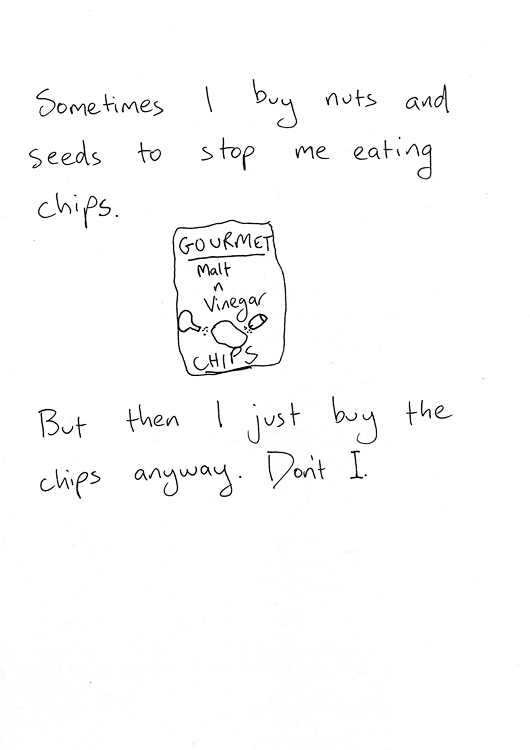 Sometimes I buy nuts and
seeds to stop me eating
chips.
GOURMET
Malt
n
Vinegar
CHIPS
But then I just buy the
chips anyway. Don't I.